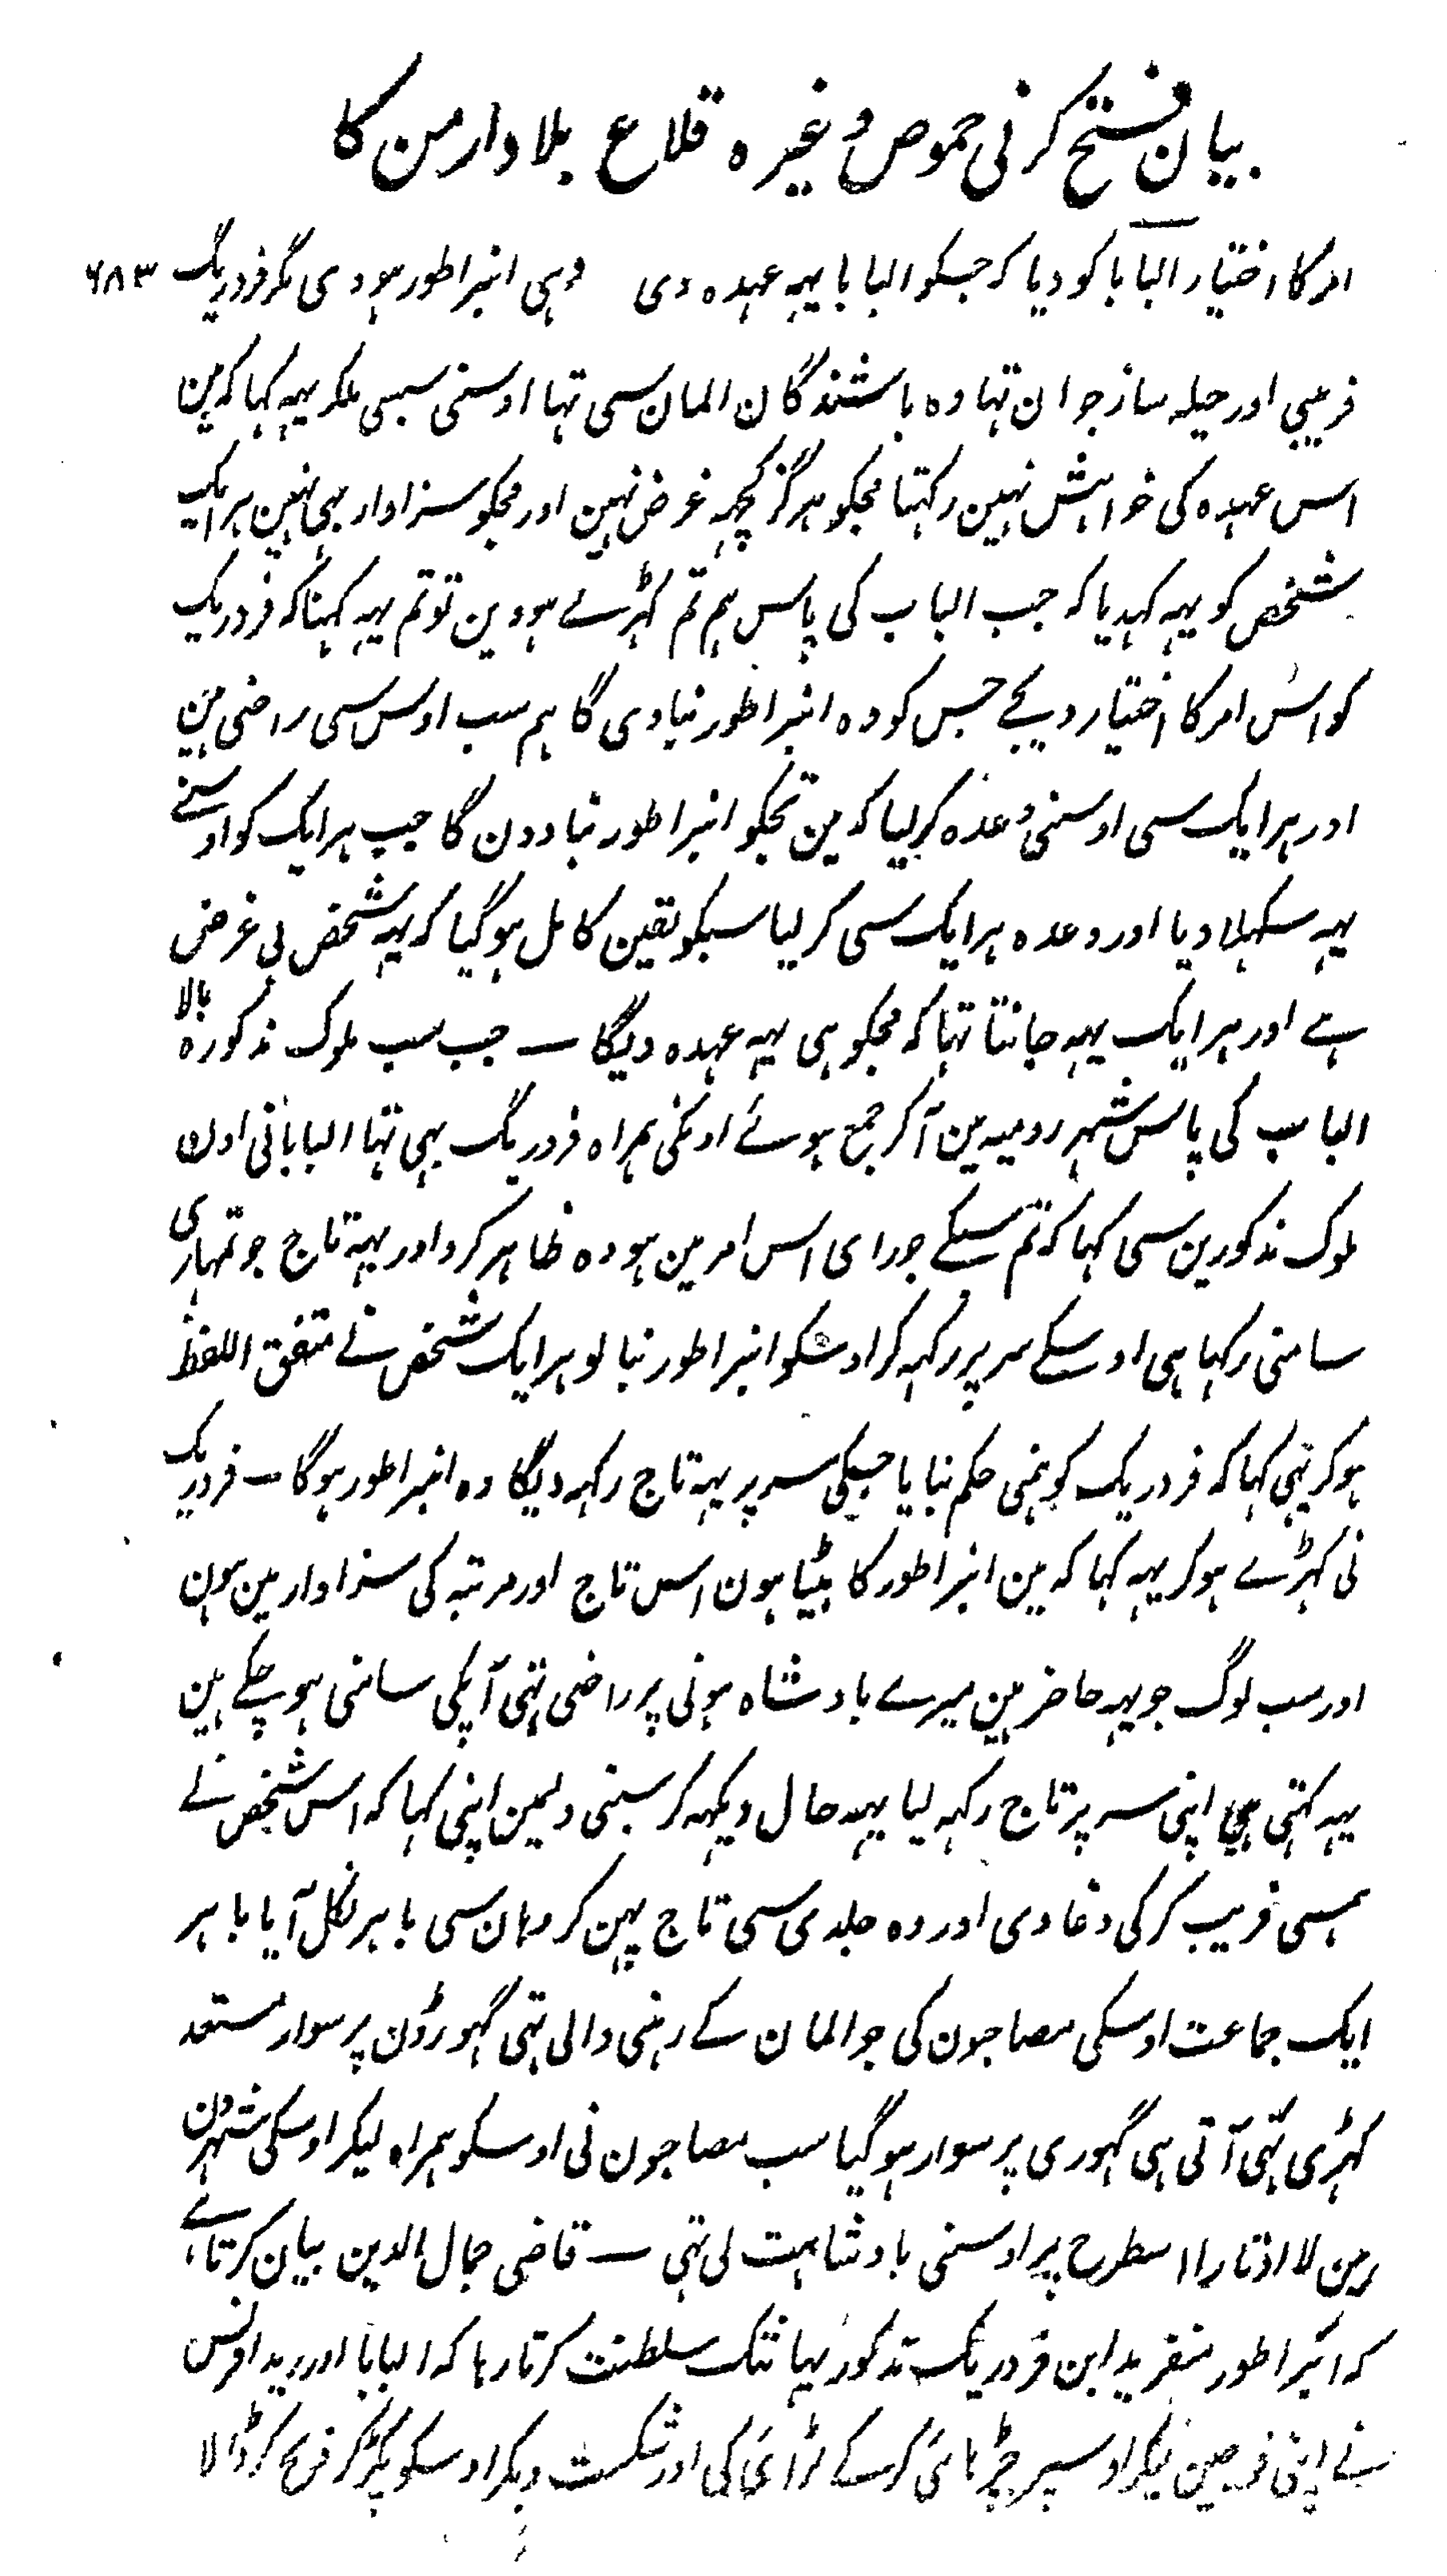 بیان فتح کرنی حموص وغیرہ قلاع بلاد ارمن کا
امر کا اختیار البابا کو دیا کہ جسکو البابا یہہ عہدہ دی وہی انبراطور ہودی مگر فردریک ۶۸۳
فریبی اور حیلہ ساز جوان تہا وہ باشندگان المان سی تہا اوسنی سبسی ملکر یہہ کہا کہ مین
اس عہدہ کی خواہش نہین رکہتا مجکو ہرگز کچہہ غرض نہین اور مجکو سزاوار بہی نہین ہر ایک
شخص کو یہہ کہدیا کہ جب الباب کی پاس ہم تم کہڑے ہووین تو تم یہہ کہنا کہ فردریک
کو اس امر کا اختیار دیجے جس کو وہ انبراطور بنا دی گا ہم سب اوس سی راضی ہین
اور ہر ایک سی اوسنی وعدہ کر لیا کہ مین تجکو انبراطور بنا دون گا جب ہر ایک کو اوسنے
یہہ سکہلا دیا اور وعدہ ہر ایک سی کر لیا سبکو یقین کامل ہو گیا کہ یہہ شخص بی غرض
ہے اور ہر ایک یہہ جانتا تہا کہ مجکو ہی یہہ عہدہ دیگا — جب سب ملوک مذکورہ بالا
الباب کی پاس شہر رومیہ مین آکر جمع ہوئے اونکی ہمراہ فردریک بہی تہا البابا نی اون
ملوک مذکورین سی کہا کہ تم سبکے جو رای اس امر مین ہو وہ ظاہر کرو اور یہہ تاج جو تمہاری
سامنی رکہا ہی اوسکے سر پر رکہہ کر اوسکو انبراطور بنا لو ہر ایک شخص نے متفق اللفظ
ہو کر یہی کہا کہ فردریک کو ہمنی حکم بنایا جسکی سر پر یہہ تاج رکہہ دیگا وہ انبراطور ہوگا — فردریک
نی کہڑے ہو کر یہہ کہا کہ مین انبراطور کا بیٹیا ہون اس تاج اور مرتبہ کی سزاوار مین ہون
اور سب لوگ جو یہہ حاضر ہین میرے بادشاہ ہونی پر راضی بہی آپکی سامنی ہو چکے ہین
یہہ کہتی ہی اپنی سر پر تاج رکہہ لیا یہہ حال دیکہہ کر سبنی دلمین اپنی کہا کہ اس شخص نے
ہمسی فریب کر کی دغا دی اور وہ جلدی سی تاج پہن کر وہان سی باہر نکل آیا باہر
ایک جماعت اوسکی مصاحبون کی جو المان کے رہنی والی تہی گہوڑون پر سوار مستعد
کہڑی تہی آتی ہی گہوری پر سوار ہو گیا سب مصاحبون نی اوسکو ہمراہ لیکر اوسکی شہرون
مین لا اوتارا اسطرح پر اوسنی بادشاہت لی تہی — قاضی جمال الدین بیان کرتا ہے
کہ انبراطور منفرید ابن فردریک مذکور یہانتک سلطنت کرتا رہا کہ البابا اور رید افرنس
نے اپنی فوجین لیکر اوسپر چڑہائی کر کے لڑائی کی اور شکست دیکر اوسکو پکڑ کر ذبح کر ڈالا